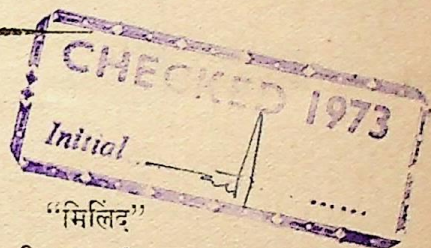 CHECKED 1973
Initial ......
“मिलिंद”